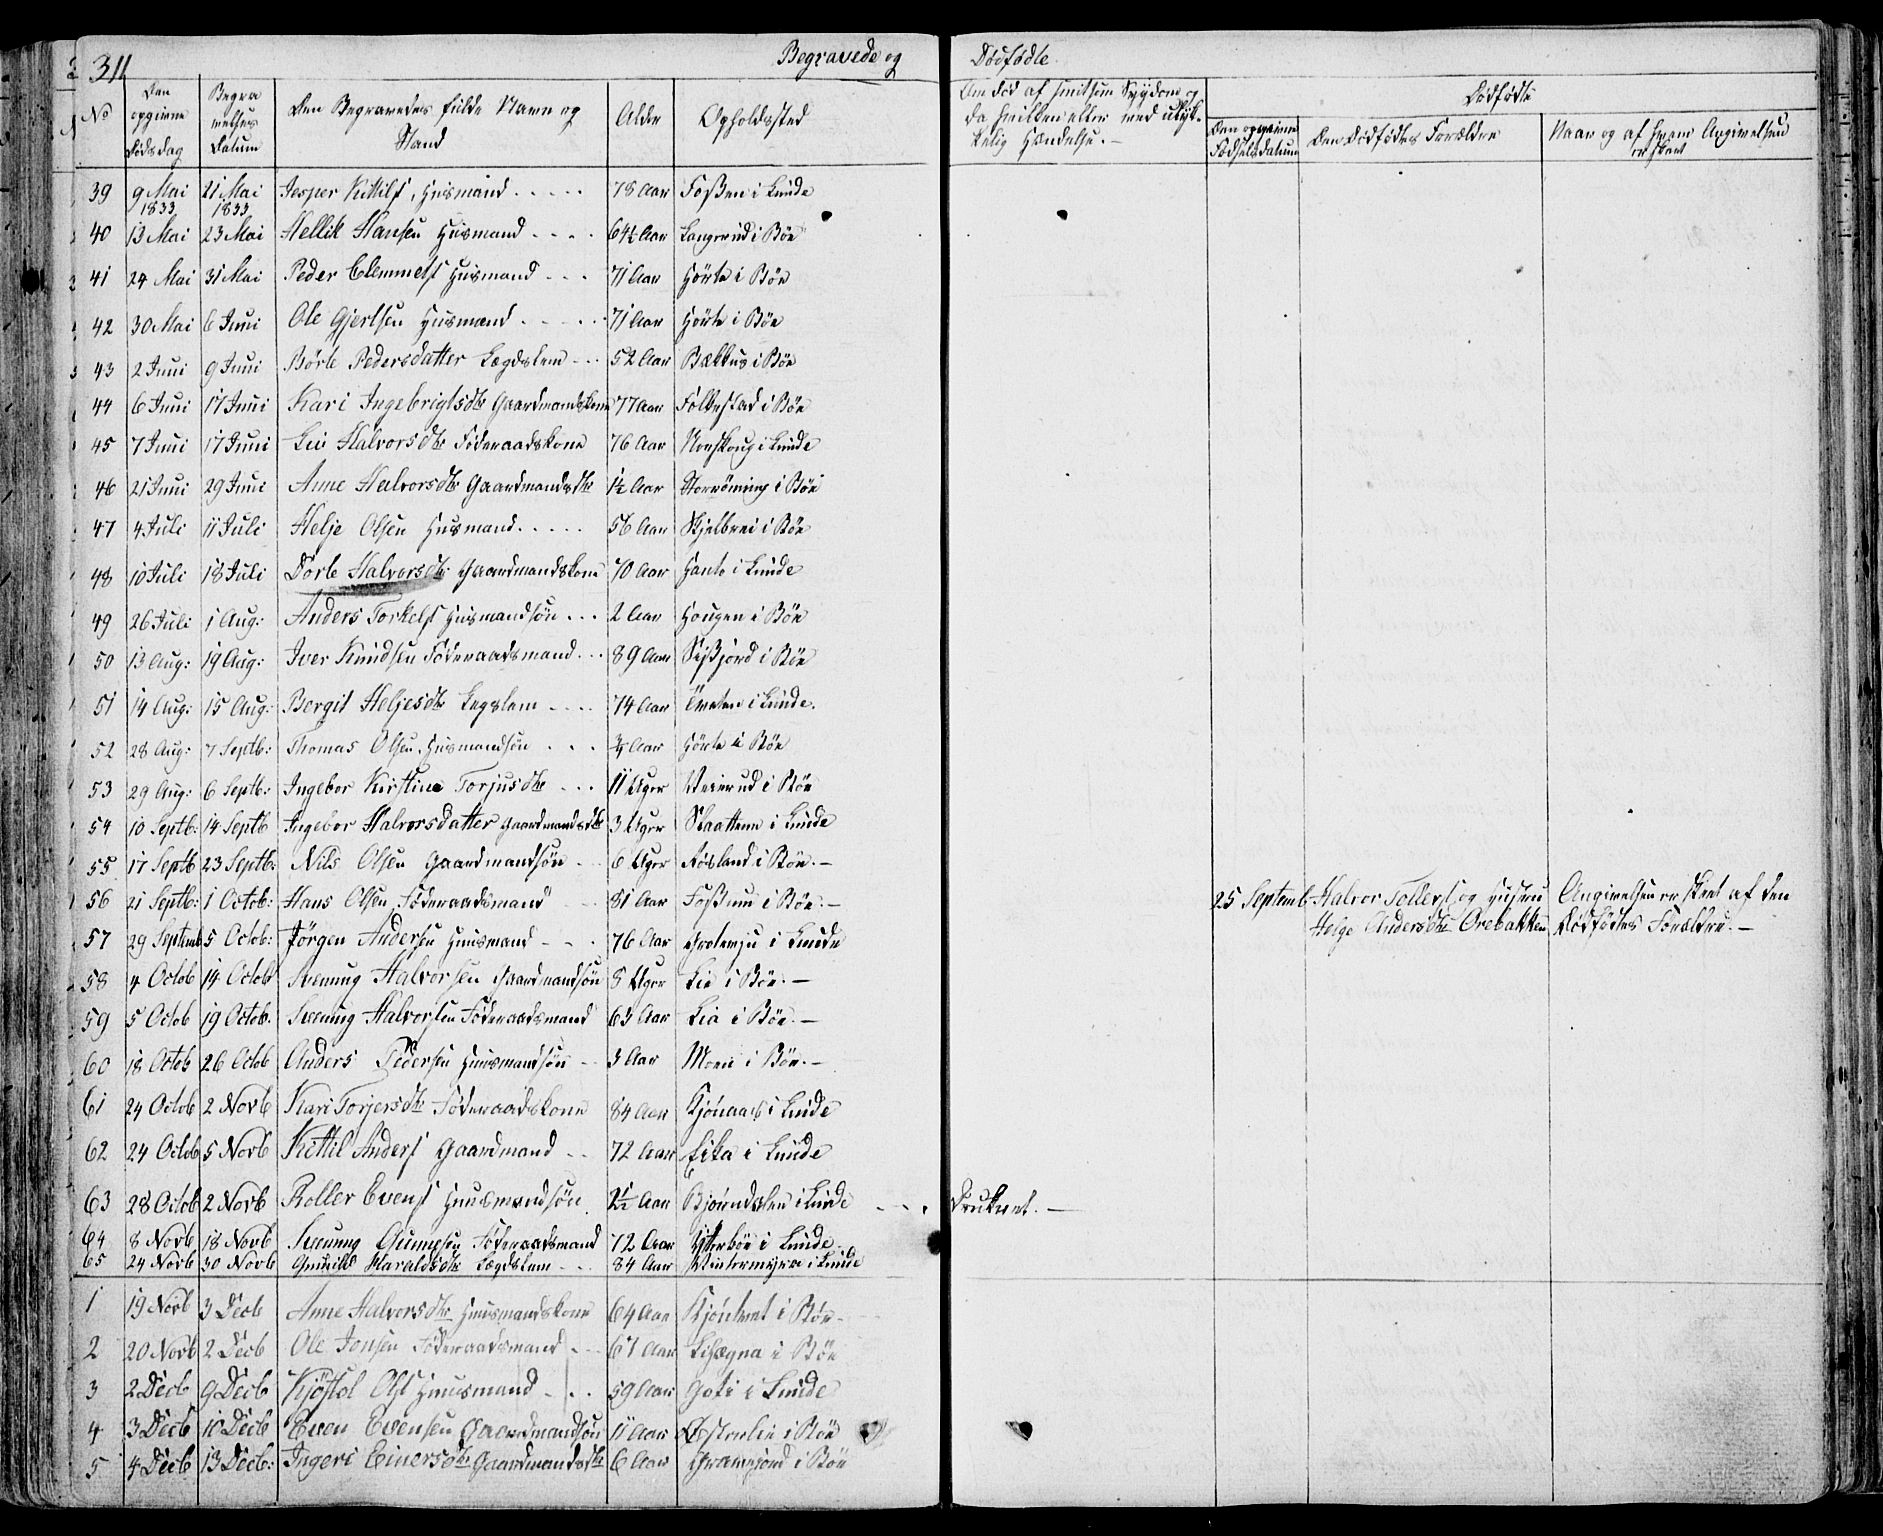 311 Begravede og Dødfødte.
No Den opgivne Dødsdag Begravelses Datum Den Begravedes fulde Navn og Stand Alder Opholdssted Om død af smitsom Sygdom og da hvilken eller ved ulykkelig Hændelse.- Dødfødte
Den opgivne Fødselsdatum Den Dødfødtes Forældre Naar og af hvem Angivelsen er skeet
39 9 Mai 1833 21 Mai 1833 Jesper Kittils. Huusmand 78 Aar Foßen i Lunde
40 13 Mai 23 Mai Hellik Hansen Huusmand 64½ Aar Langerud i Bøe
41 24 Mai 31 Mai Peder Clemmets Huusmand 71 Aar Hørte i Bøe
42 30 Mai 6 Juni Ole Gjertsen Huusmand 71 Aar Hørte i Bøe
43 2 Juni 9 Juni Børle Pedersdatter Lægdslem 52 Aar Bækkus i Bøe
44 6 Juni 17 Juni Kari Ingebrigtsdtr Gaardmandskone 77 Aar Folkestad i Bøe
45 7 Juni 17 Juni Liv Halvorsdtr Føderaadskone 76 Aar Norskoug i Lunde
46 21 Juni 29 Juni Anne Halvorsdtr Gaardmandsdtr 1½ Aar i Bøe
47 4 Juli 11 Juli Helje Olsen Huusmand 56 Aar Skjelbrei i Bøe
48 10 Juli 18 Juli Dorte Halvorsdtr Gaardmandskone 70 Aar Hante i Lunde
49 26 Juli 1 Aug: Anders Torkels Huusmandsøn 2 Aar Hougen i Bøe
50 13 Aug: 19 Aug: Iver Knudsen Føderaadsmand 89 Aar Seßjord i Bøe
51 14 Aug: 15 Aug: Bergit Heljesdtr Legslem 74 Aar Tveten i Lunde.
52 28 Aug: 7 Septb: Thomas Olsen. Huusmandsøn ¾ Aar Hørte i Bøe
53 29 Aug: 6 Septb: Ingebor Kirstine Torjusdtr 11 Uger Verirud i Bøe
54 10 Septb: 14 Septb Ingebor Halvorsdatter Gaardmandsdtr 3 Uger Slaattene i Lunde
55 17 Septb 23 Septb: Nils Olsen Gaardmandsøn 6 Uger Aasland i Bøe.-
56 21 Septb: 1 Octob: Hans Olsen Føderaadsmand 81 Aar Foßum i Bøe.- 25 Septemb Halvor Tollefs. og Hustru Angivelsen er skeet af den
57 29 Septemb 5 Octob: Jørgen Andersen Huusmand 76 Aar i Lunde Helge Andersdtr Orebakken Dødfødtes Forældre.-
58 4 Octob 14 Octob Svenung Halvorsen Gaardmandsøn 8 Uger Lie i Bøe.-
59 5 Octob 19 Octob. Svenung Halvorsen Føderaadsmand 63 Aar Lia i Bøe.-
60 18 Octob 26 Octob Anders Pedersen Huusmandsøn 3 Aar Moen i Bøe.-
61 24 Octob 2 Novb Kari Torjersdtr Føderaadskone 84 Aar Kjønaas i Lunde
62 24 Octob 5 Novb Kittil Anders Gaardmand 72 Aar Eika i Lunde
63 28 Octob 2 Novb Roller Evens Huusmandsøn 2½ Aar Bjørndalen i Lunde Druknet.-
64 8 Novb 18 Novb Svenung Gunnesen Føderaadsmand 72 Aar Ytterbøe i Lunde
65 24 Novb 30 Novb Gunild Haraldsdtr Lægdslem 84 Aar Vintermyra i Lunde
1 19 Novb 3 Decb Anne Halvorsdtr Huusmandskone 64 Aar i Bøe
2 20 Novb 2 Decb Ole Jonsen Føderaadsmand 67 Aar i Bøe
3 2 Decb 9 Decb Kjøstol Ols Huusmand 59 Aar Goti i Lunde
4 3 Decb 10 Decb Even Evensen Gaardmandsøn 11 Aar Østerlie i Bøe
5 4 Decb 13 Decb: Ingeri Einersdtr Gaardmandsdtr 6 Aar i Bøe